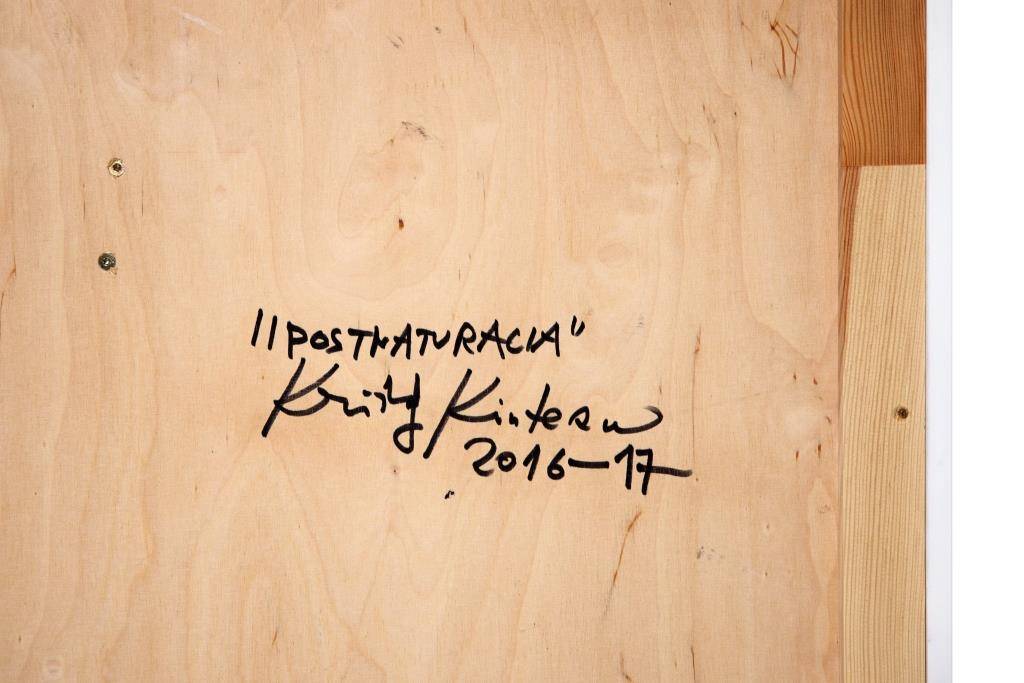 "POSTNATURACIA"
Krištof Kintera
2016-17